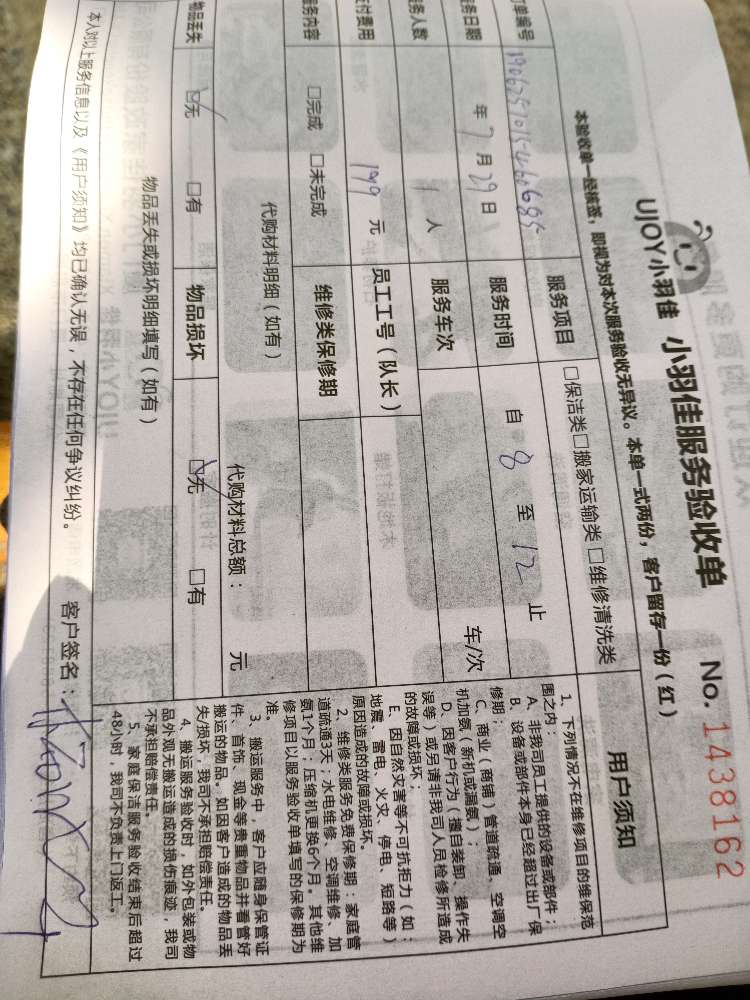 UJOY小羽佳 小羽佳服务验收单 No. 1438162
本验收单一经核签，即视为对本次服务验收无异议。本单一式两份，客户留存一份（红）
订单编号
服务项目 □保洁类□搬家运输类 □维修清洗类
服务日期 年 7 月 29 日 服务时间 自 8 至 12 止
服务人数 1 人 服务车次 车/次
支付费用 199 元 员工工号（队长）
服务内容 □完成 □未完成 维修类保修期
代购材料明细（如有） 代购材料总额： 元
物品丢失 ☑无 □有 物品损坏 ☑无 □有
物品丢失或损坏明细填写（如有）
本人对以上服务信息以及《用户须知》均已确认无误，不存在任何争议纠纷。 客户签名：
用户须知
1、下列情况不在维修项目的维保范
围之内：
A、非我司员工提供的设备或部件；
B、设备或部件本身已经超过出厂保
修期；
C、商业（商铺）管道疏通，空调空
机加氨（新机或漏氨）；
D、因客户行为（擅自装卸、操作失
误等）或另请非我司人员检修所造成
的故障或损坏；
E、因自然灾害等不可抗拒力（如：
地震、雷电、火灾、停电、短路等）
原因造成的故障或损坏。
2、维修类服务免费保修期：家庭管
道疏通3天；水电维修、空调维修、加
氨1个月；压缩机更换6个月。其他维
修项目以服务验收单填写的保修期为
准。
3、搬运服务中，客户应随身保管证
件、首饰、现金等贵重物品并看管好
搬运的物品。如因客户造成的物品丢
失/损坏，我司不承担赔偿责任。
4、搬运服务验收时，如外包装或物
品外观无搬运造成的损伤痕迹，我司
不承担赔偿责任。
5、家庭保洁服务验收结束后超过
48小时，我司不负责上门返工。